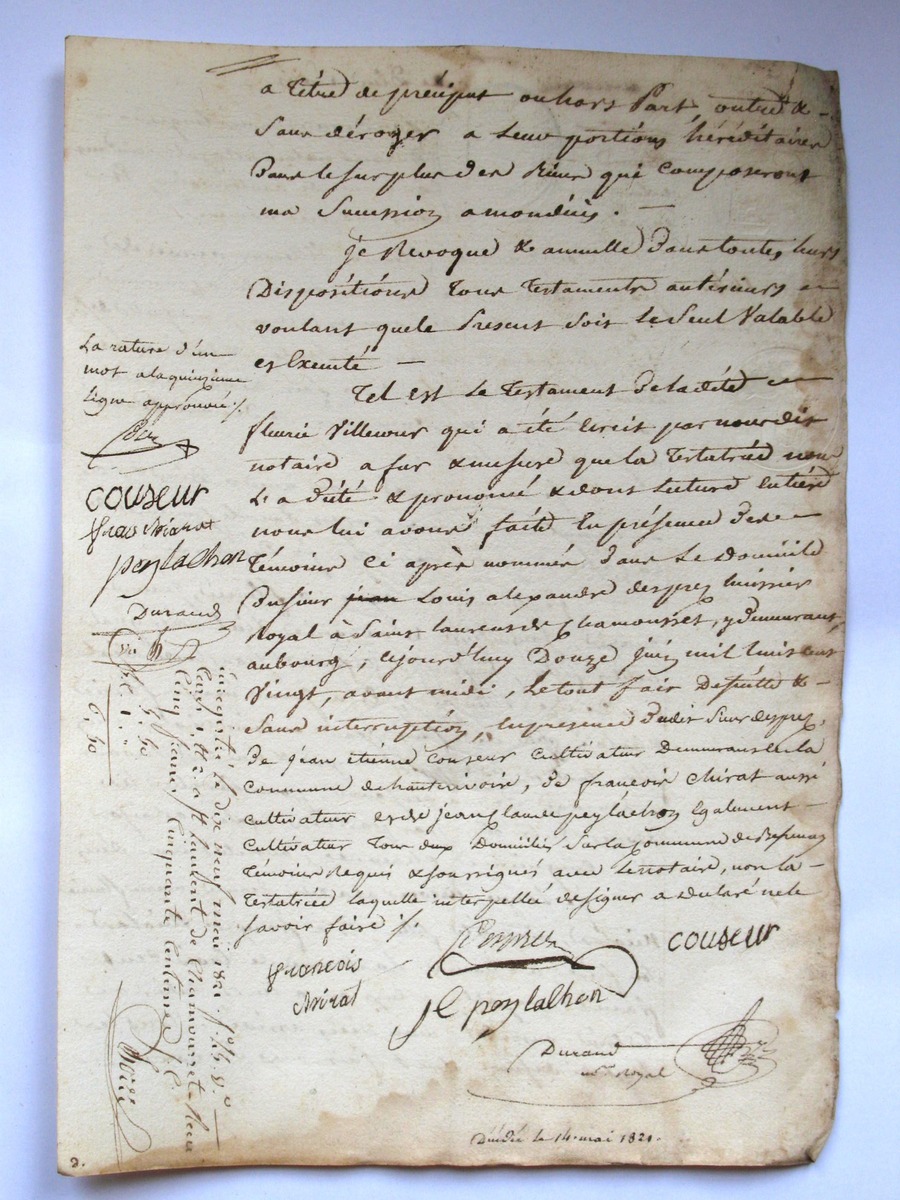 a titre de préciput ou hors Part, outre &
sans déroger a leur portions héréditaires
dans le surplus des Biens qui composeront
ma Succession a mon décès. —
je Revoque & annulle dans toutes leurs
Dispositions tous testaments antérieurs
voulant que le Présent soit le seul Valable
et Exécuté —
Tel est le testament de la dite
fleurie Villeneuve qui a été écrit par nous dit
notaire a fur & mesure que la testatrice nous
L'a dicté & prononcé & dont lecture entière
nous lui avons faite En présence des
témoins Ci après nommés dans le domicile
du sieur jean Louis alexandre desprez huissier
royal à Saint laurent de Chamousset, y demeurant
au bourg, cejourd'huy Douze juin mil huit cent
Vingt, avant midi, le tout fait de suite &
sans interruption, En présence dudit sieur desprez,
De jean étienne couseur cultivateur Demeurant en la
Commune de hauterivoire, De françois Chirat aussi
cultivateur et de jean Claude peylachon Egalement
Cultivateur tous deux Domiciliés sur la Commune de
témoins Requis & soussignés avec le notaire, non la
testatrice laquelle interpellée de signer a déclaré ne le
savoir faire ./.
La rature d'un
mot a la quinzieme
Ligne approuvée ./.
couseur
fraˢ chirat
peylachon
Durand
françois
chirat
Desprez
couseur
JC peylachon
Durand
nʳᵉ Royal
Enregistré le dix neuf mai 1821 fº
à St laurent de Chamousset Reçu
Cinq francs Cinquante Centimes
5. 50
Expédié le 14 mai 1821.
2.